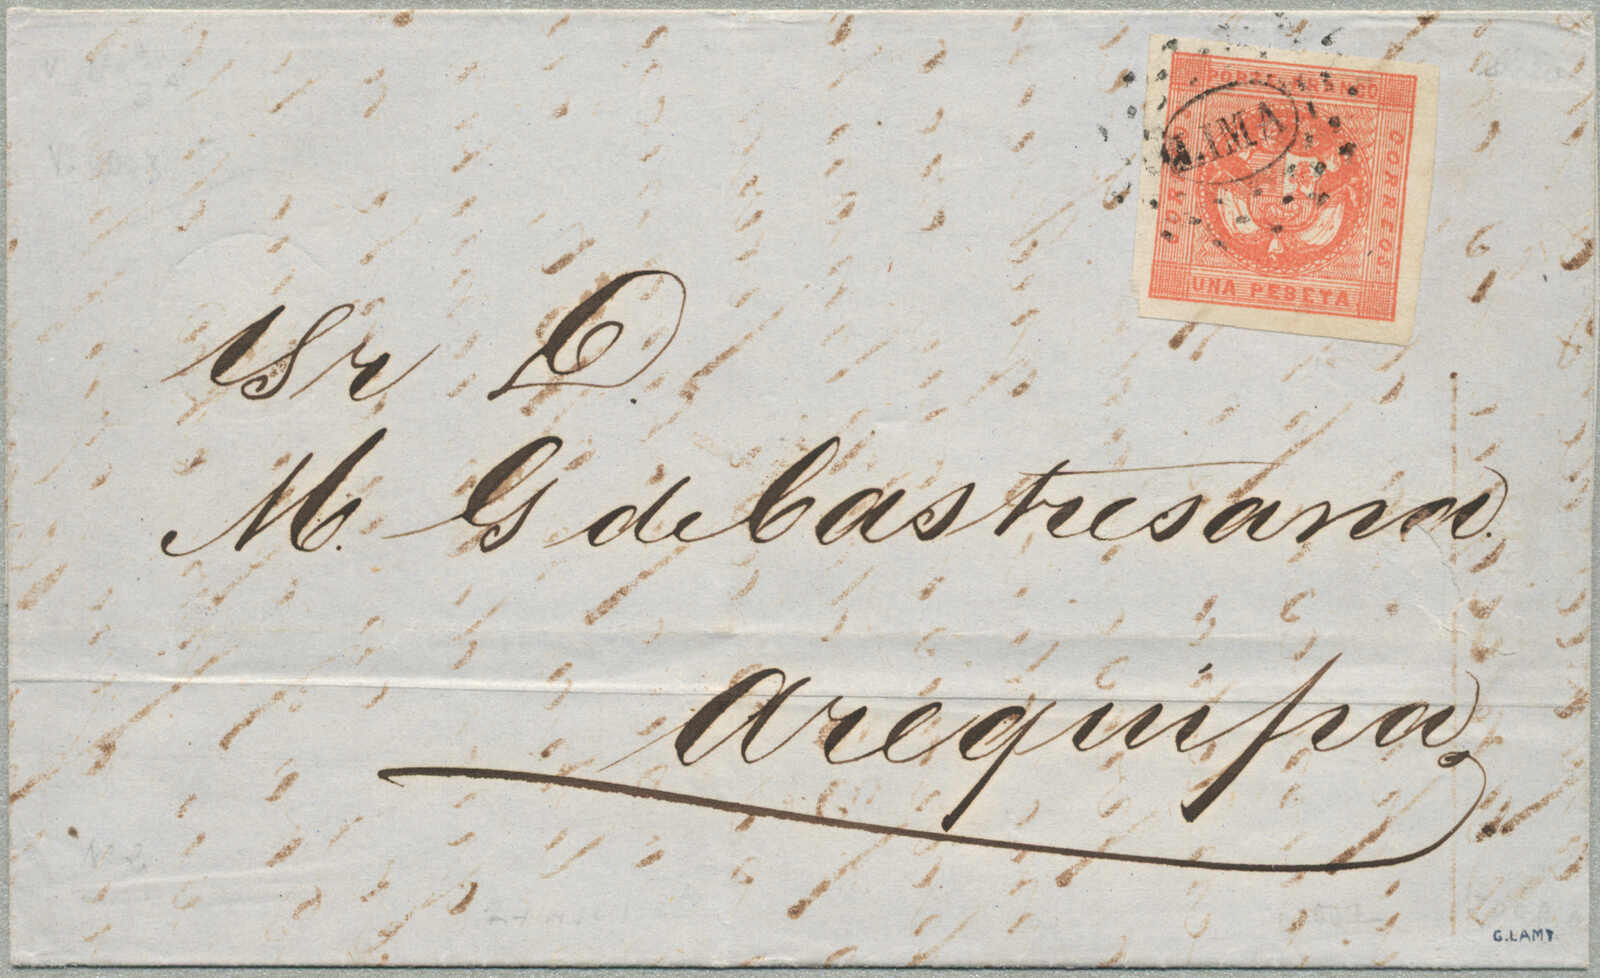 PORTE FRANCO
CORREOS.
UNA PESETA
LIMA
Sr D.
M. G de Castresana.
Arequipa
G. LAMY